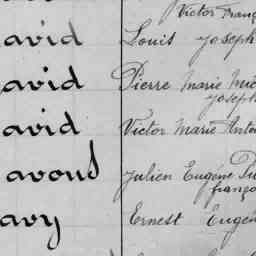 Victor Franç
avid Louis Joseph
avid Pierre Marie Mic
Joseph
avid Victor Marie Anto
avoud Julien Eugène Pi
franço
avy Ernest Eugèn